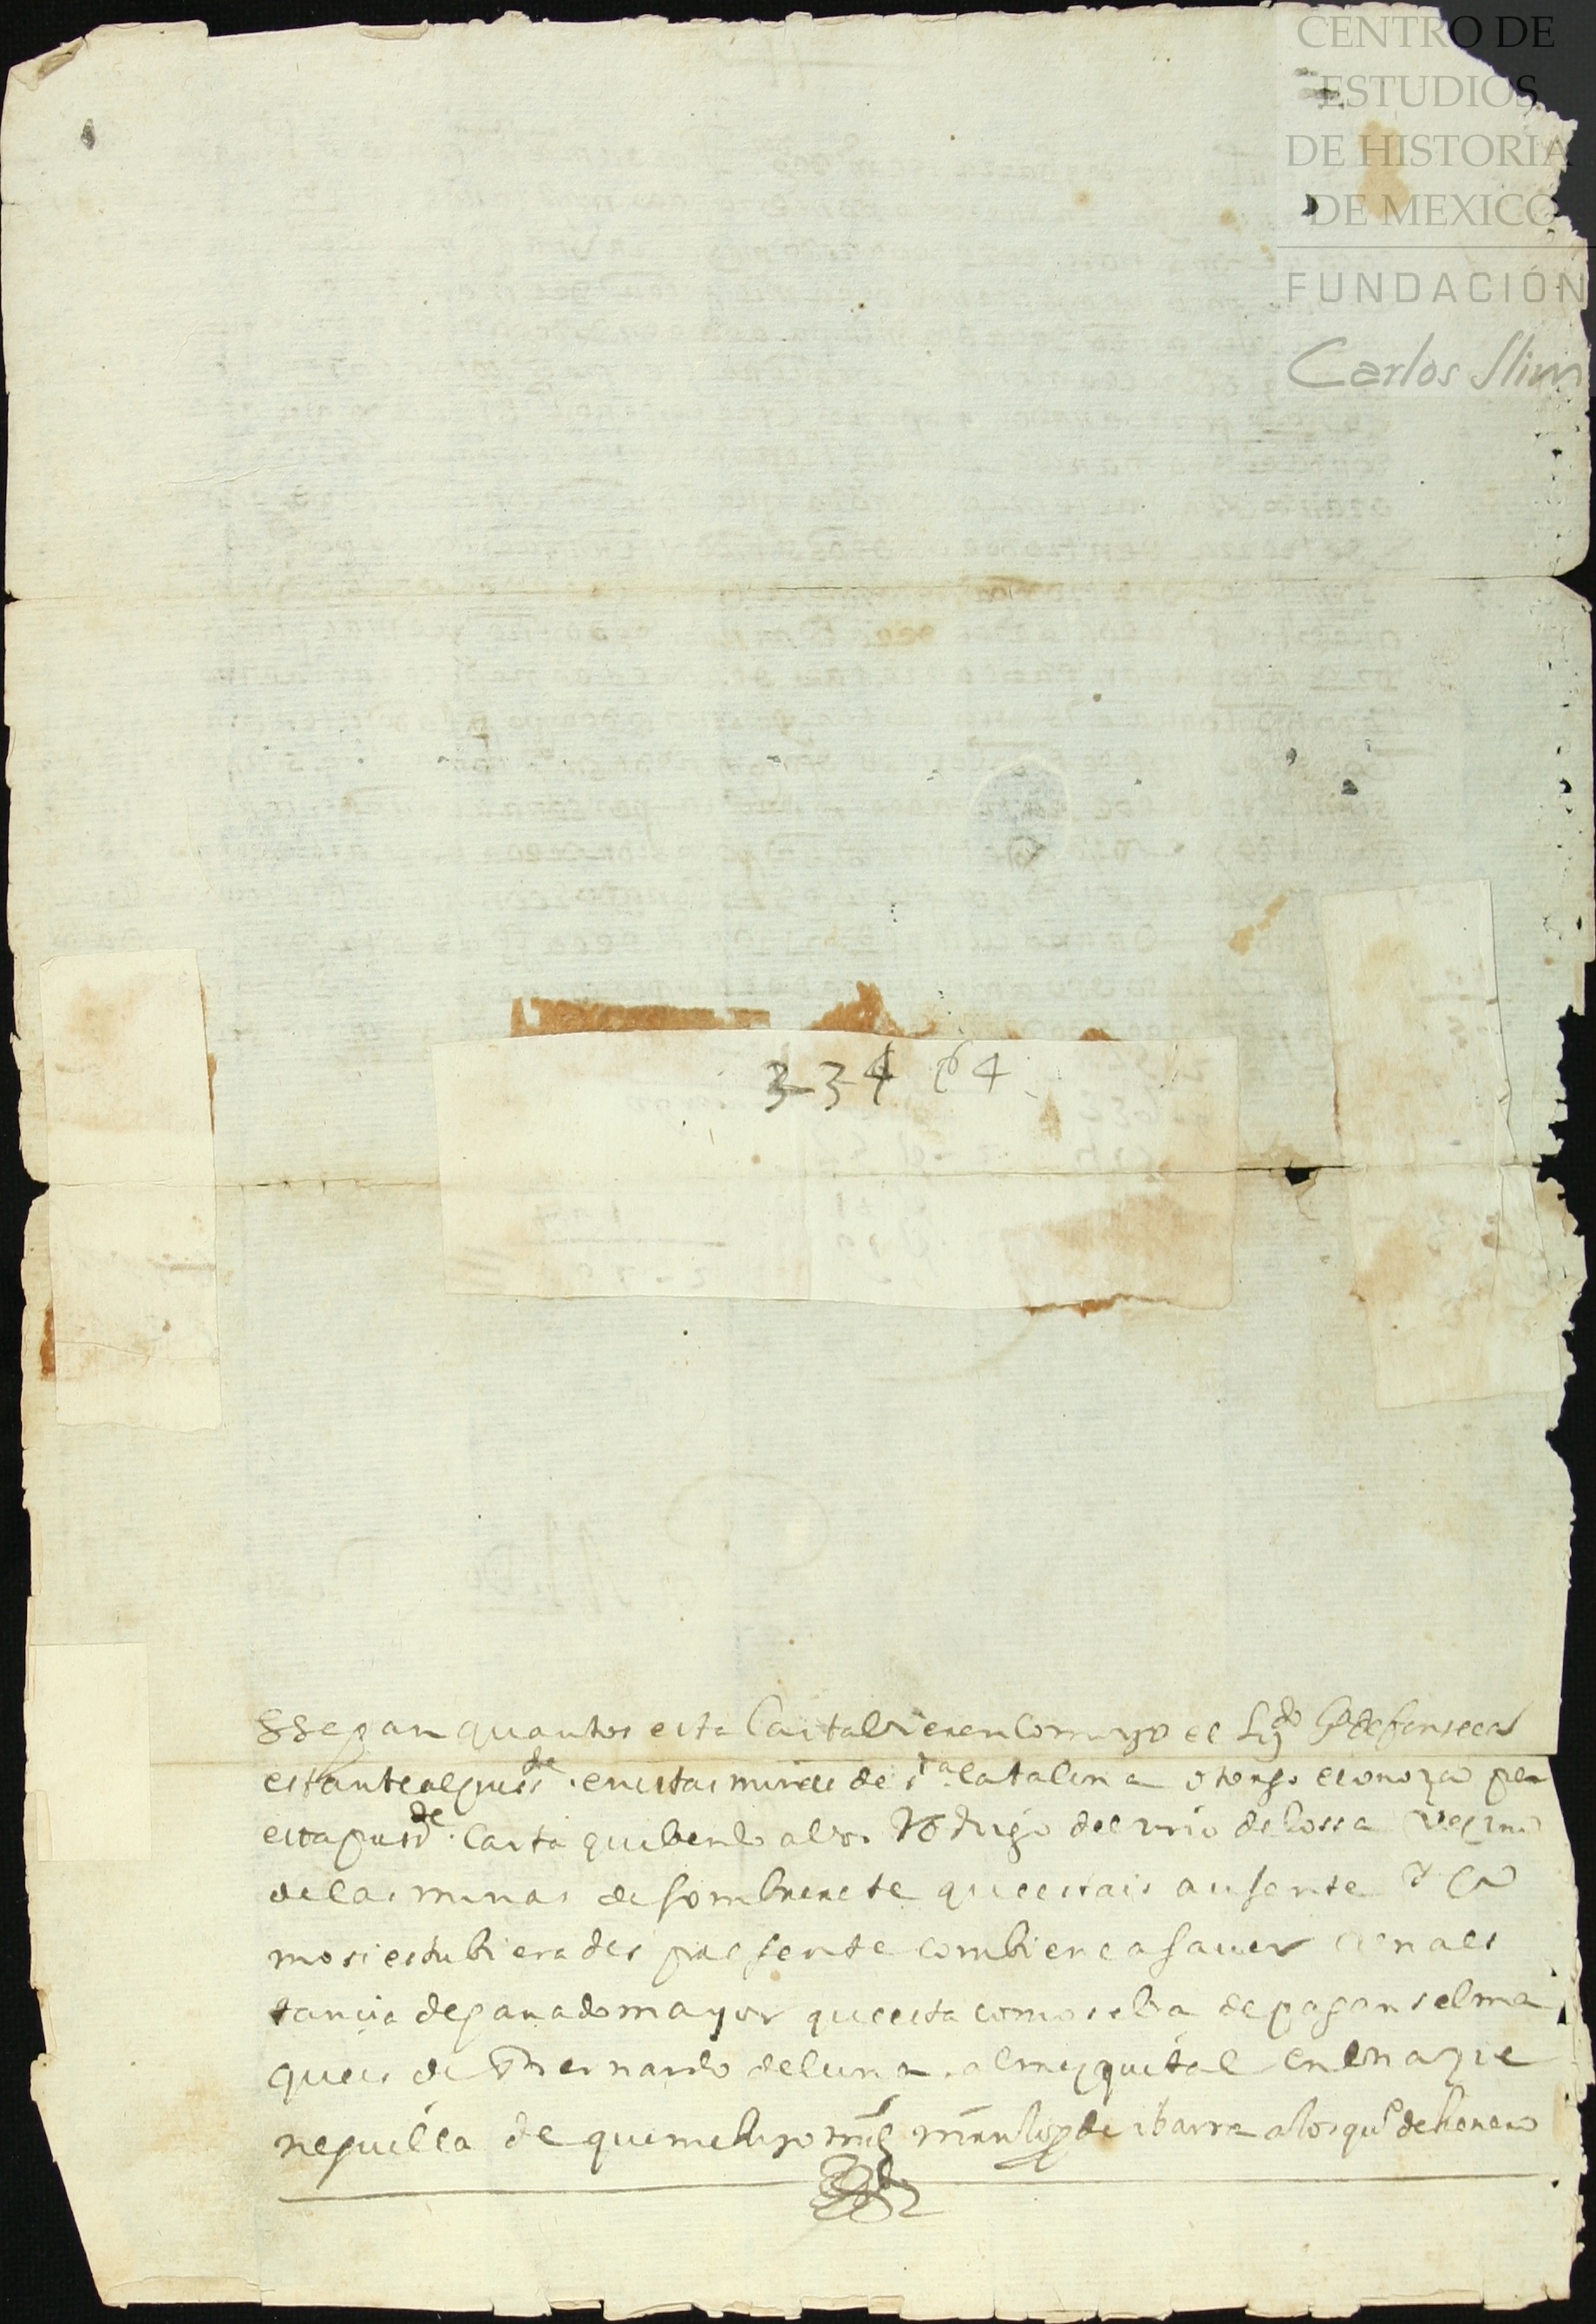 CENTRO DE
ESTUDIOS
DE HISTORIA
DE MEXICO
FUNDACIÓN
Carlos Slim
3-34 64
SSepan quantos esta Carta bieren como yo el Liçdo de fonseca
estante al pressde. en estas minas de sta. Catalina otorgo e conozco por
esta pressde. Carta que bendo a bos Rodrigo del rrio de lossa veçino
de las minas de sombrerete que estais ausente
mo si estubierades pressente combiene a saver una es
tançia de ganado mayor que esta como se ba de
ques de Bernardo de luna al mezquital en una zie
neguilla de que me hizo md martin lopez de ibarra a los qe de henero